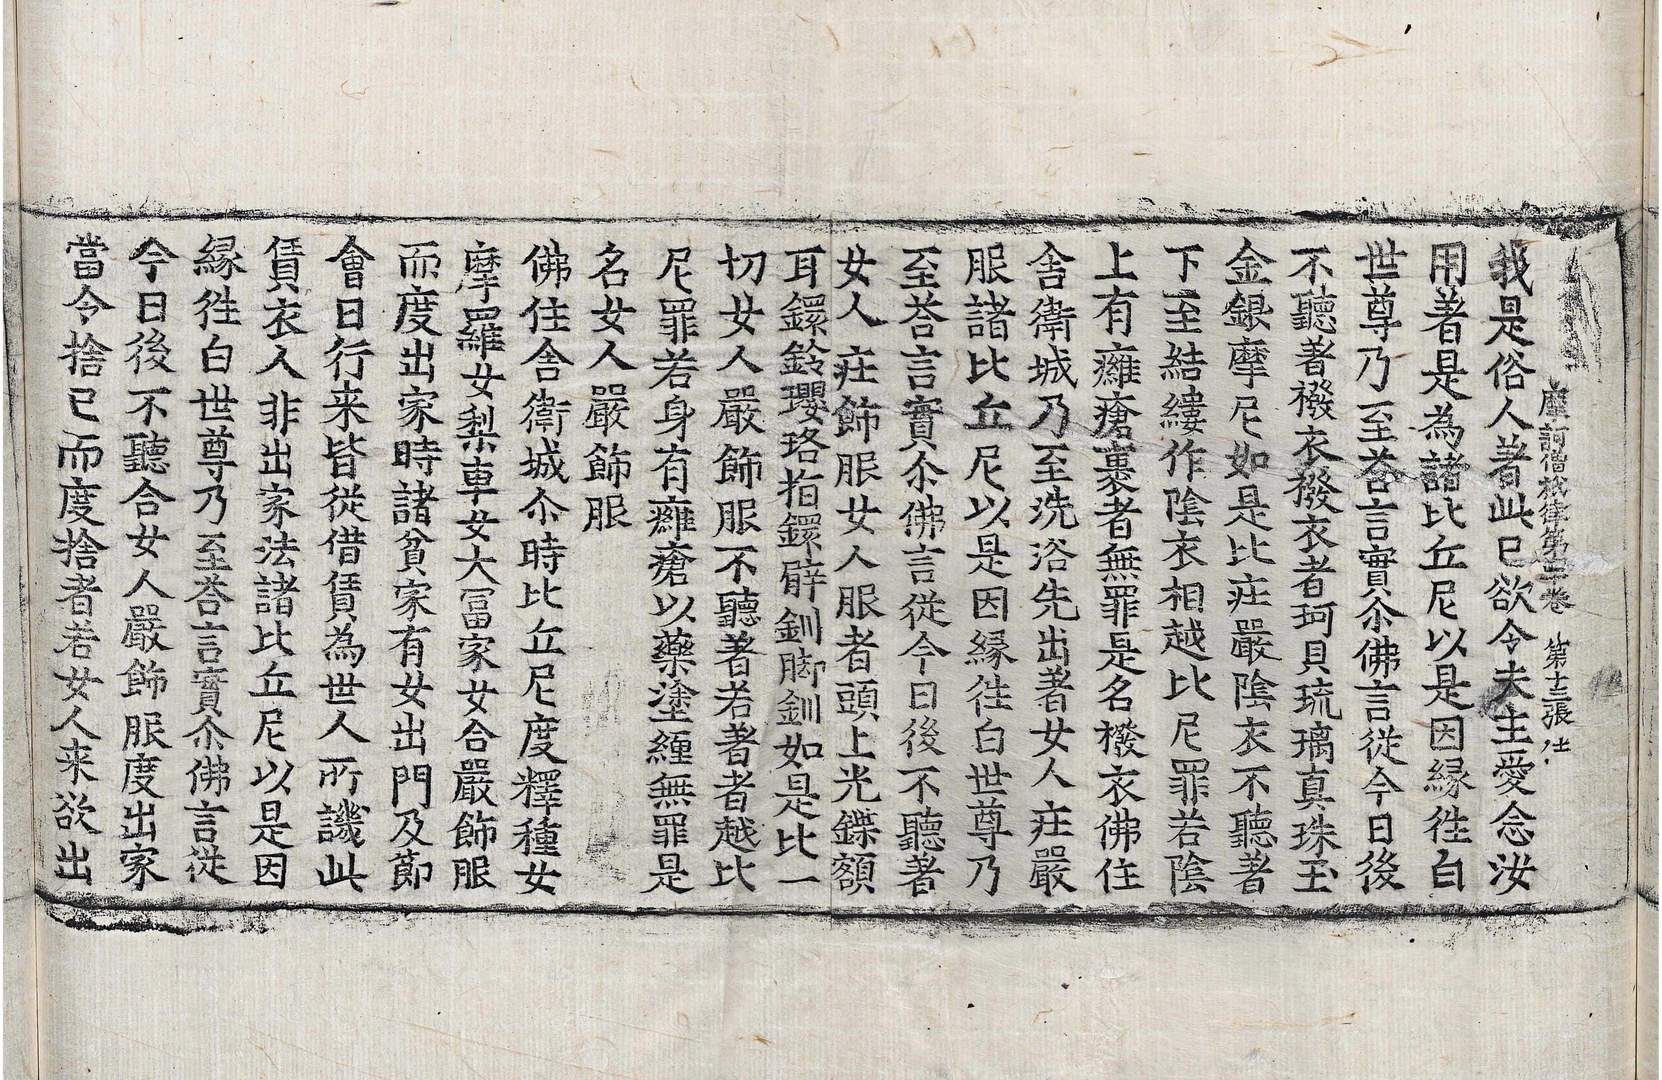 摩訶僧祇律第卷 第十三張
我是俗人著此已欲令夫主愛念汝
用著是為諸比丘尼以是因縁往白
世尊乃至荅言實尒佛言從今日後
不聽著襏衣襏衣者珂貝琉璃真珠玉
金銀摩尼如是比莊嚴陰衣不聽著
下至結縷作陰衣相越比尼罪若陰
上有癰瘡裹者無罪是名襏衣佛住
舍衛城乃至洗浴先出著女人莊嚴
服諸比丘尼以是因縁往白世尊乃
至荅言實尒佛言從今日後不聽著
女人莊飾服女人服者頭上光鍱額
耳鐶鈴瓔珞指鐶臂釧脚釧如是比一
切女人嚴飾服不聽著若著者越比
尼罪若身有癰瘡以藥塗纏無罪是
名女人嚴飾服
佛住舍衛城尒時比丘尼度釋種女
摩羅女梨車女大冨家女合嚴飾服
而度出家時諸貧家有女出門及節
會日行来皆從借賃為世人所譏此
賃衣人非出家法諸比丘尼以是因
縁往白世尊乃至荅言實尒佛言從
今日後不聽合女人嚴飾服度出家
當令捨已而度捨者若女人来欲出